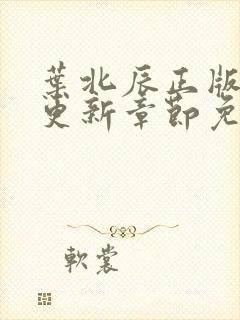 葉北辰正版
更新章節免
軟裳